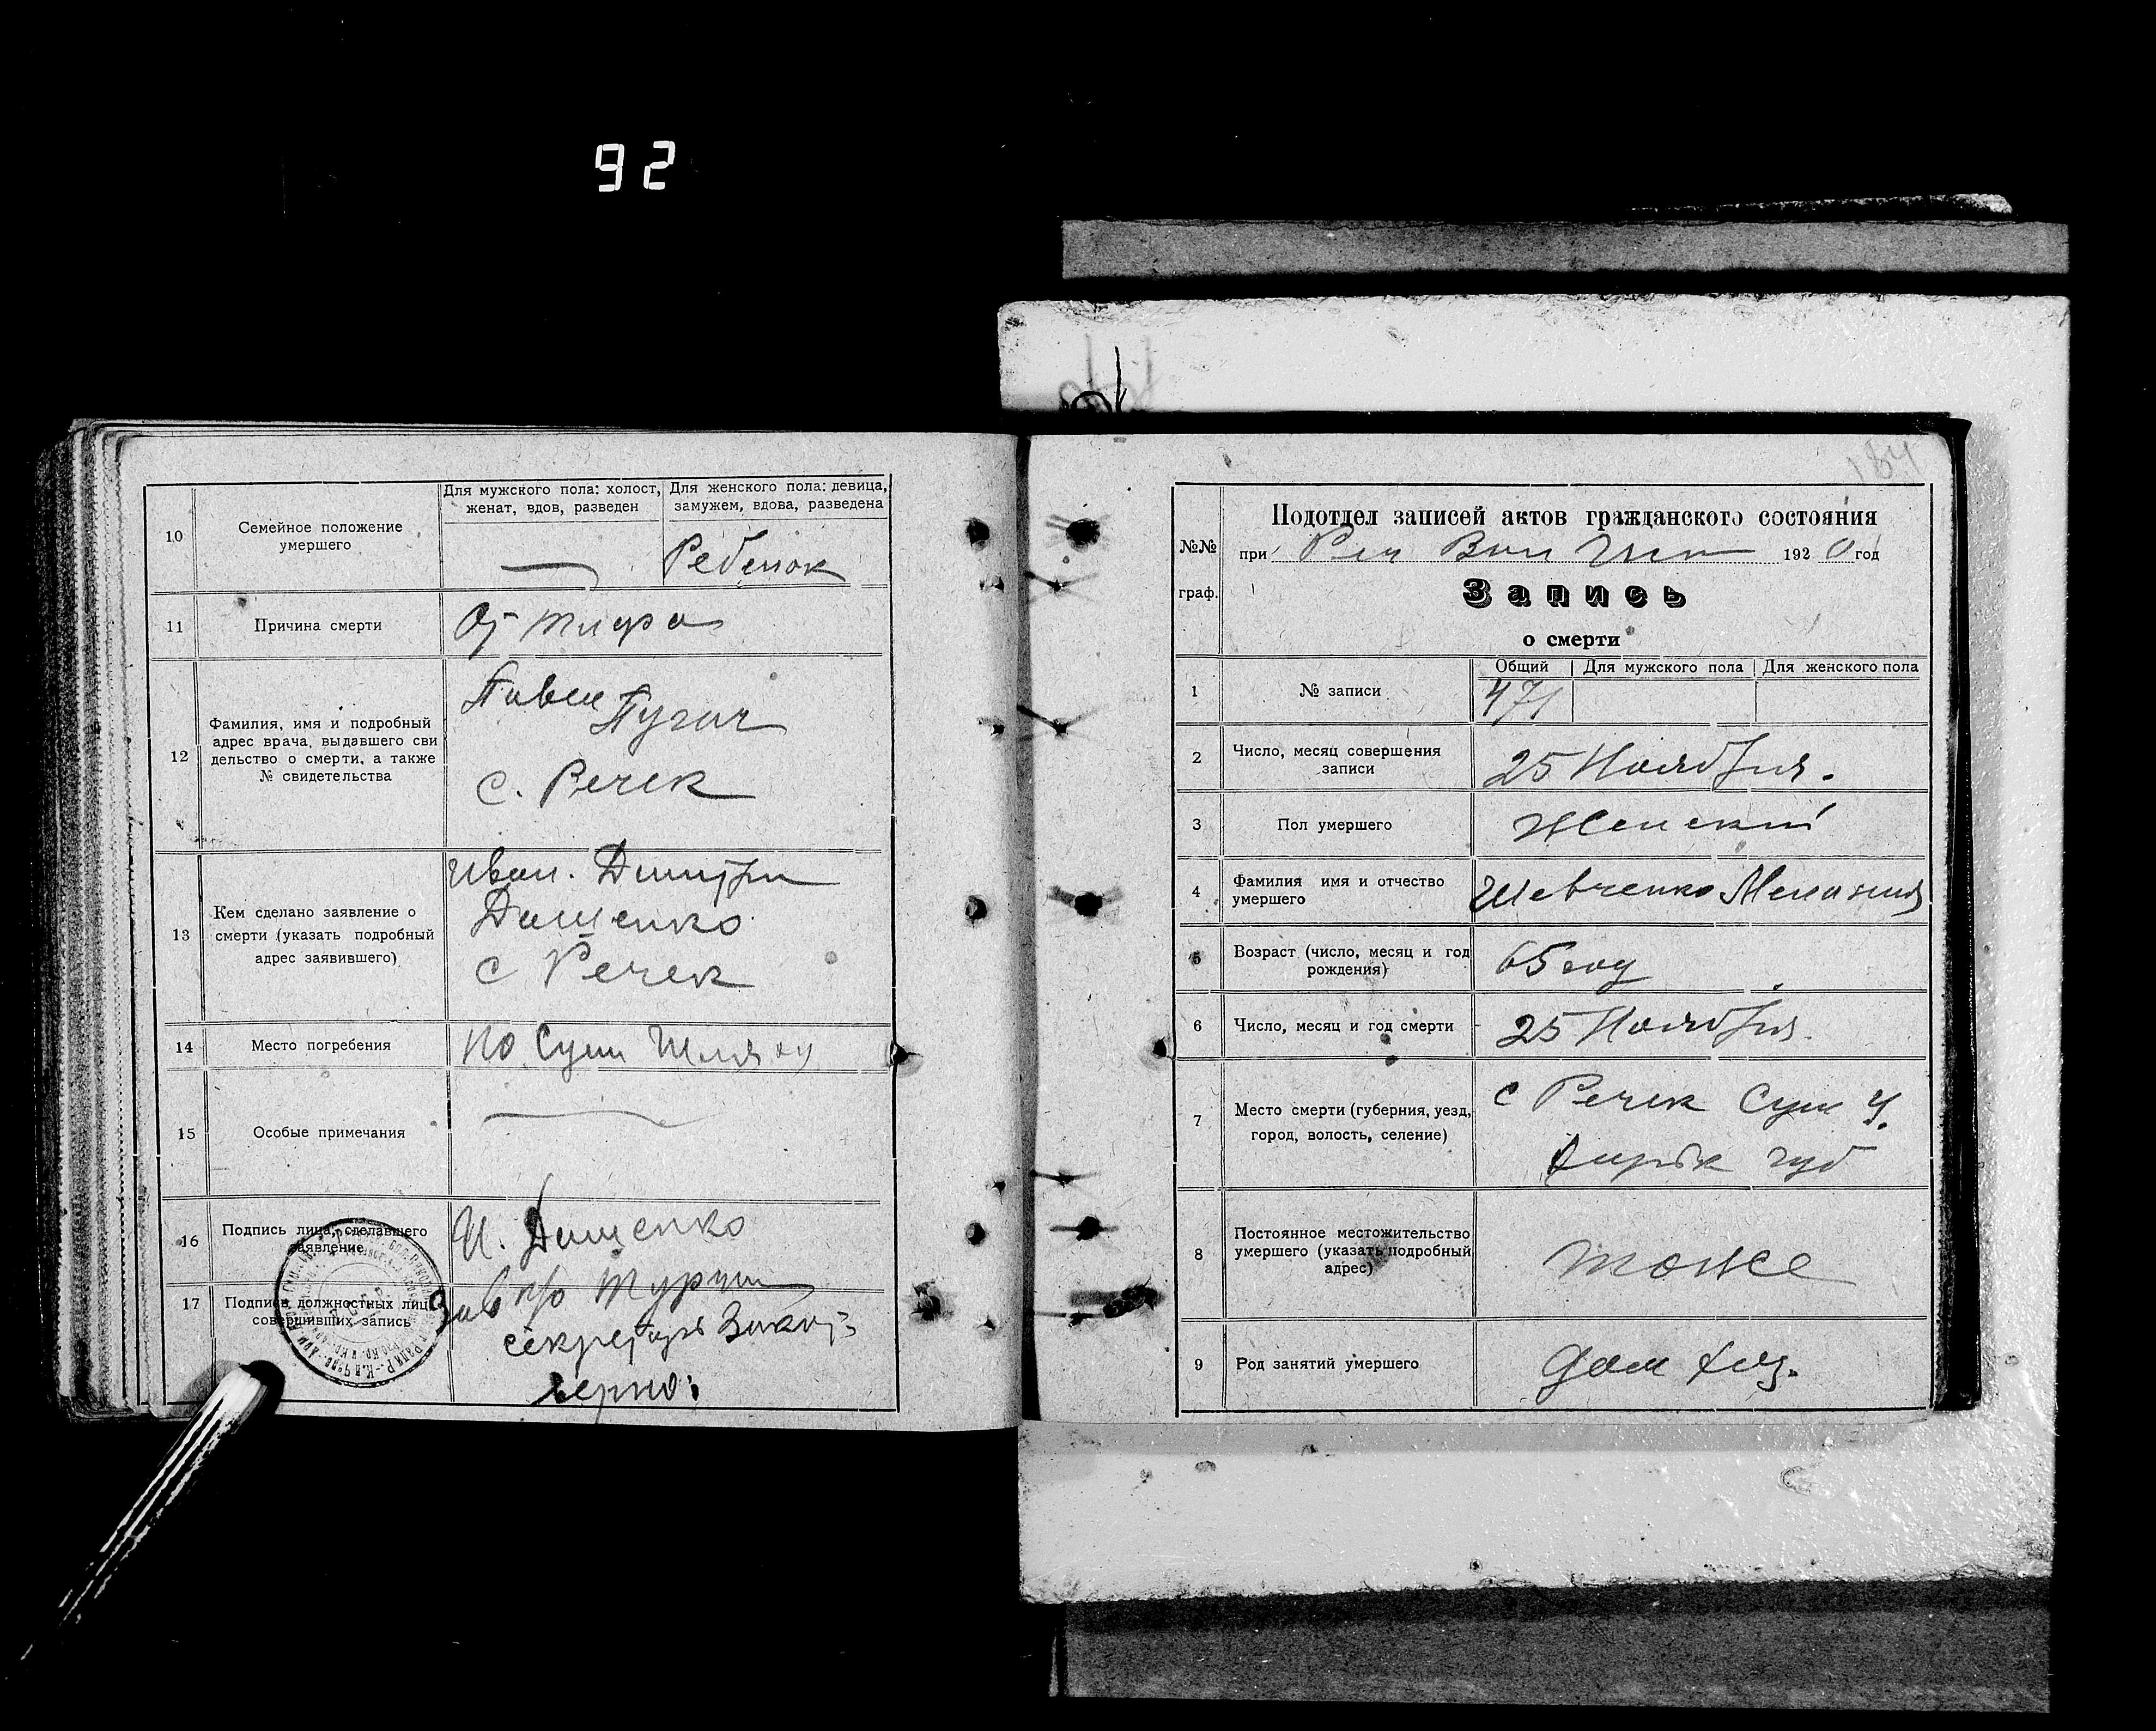 92
10
Семейное положение
умершего
Для мужского пола: холост,
женат, вдов, разведен
Для женского пола: девица,
замужем, вдова, разведена
Ребенок
11
Причина смерти
От тифа
12
Фамилия, имя и подробный
адрес врача, выдавшего сви
дельство о смерти, а также
№ свидетельства
Павел
Пугач
с. Речек
13
Кем сделано заявление о
смерти (указать подробный
адрес заявившего)
Иван. Дмитри
Дащенко
с Речек
14
Место погребения
по Сум Шляху
15
Особые примечания
16
Подпись лица, сделавшего
заявление
И. Дащенко
17
Подписи должностных лиц
совершивших запись
Зав п/о
секретарь
верно:
184
№№
граф.
Подотдел записей актов гражданского состояния
при Реч Вол 1920 год
Запись
о смерти
1
№ записи
Общий
Для мужского пола
Для женского пола
471
2
Число, месяц совершения
записи
25 Ноября.
3
Пол умершего
Женский
4
Фамилия имя и отчество
умершего
Шевченко Мелания
5
Возраст (число, месяц и год
рождения)
65 год
6
Число, месяц и год смерти
25 Ноября.
7
Место смерти (губерния, уезд,
город, волость, селение)
с Речек Сум У.
Харьк губ
8
Постоянное местожительство
умершего (указать подробный
адрес)
тоже
9
Род занятий умершего
дом хоз.